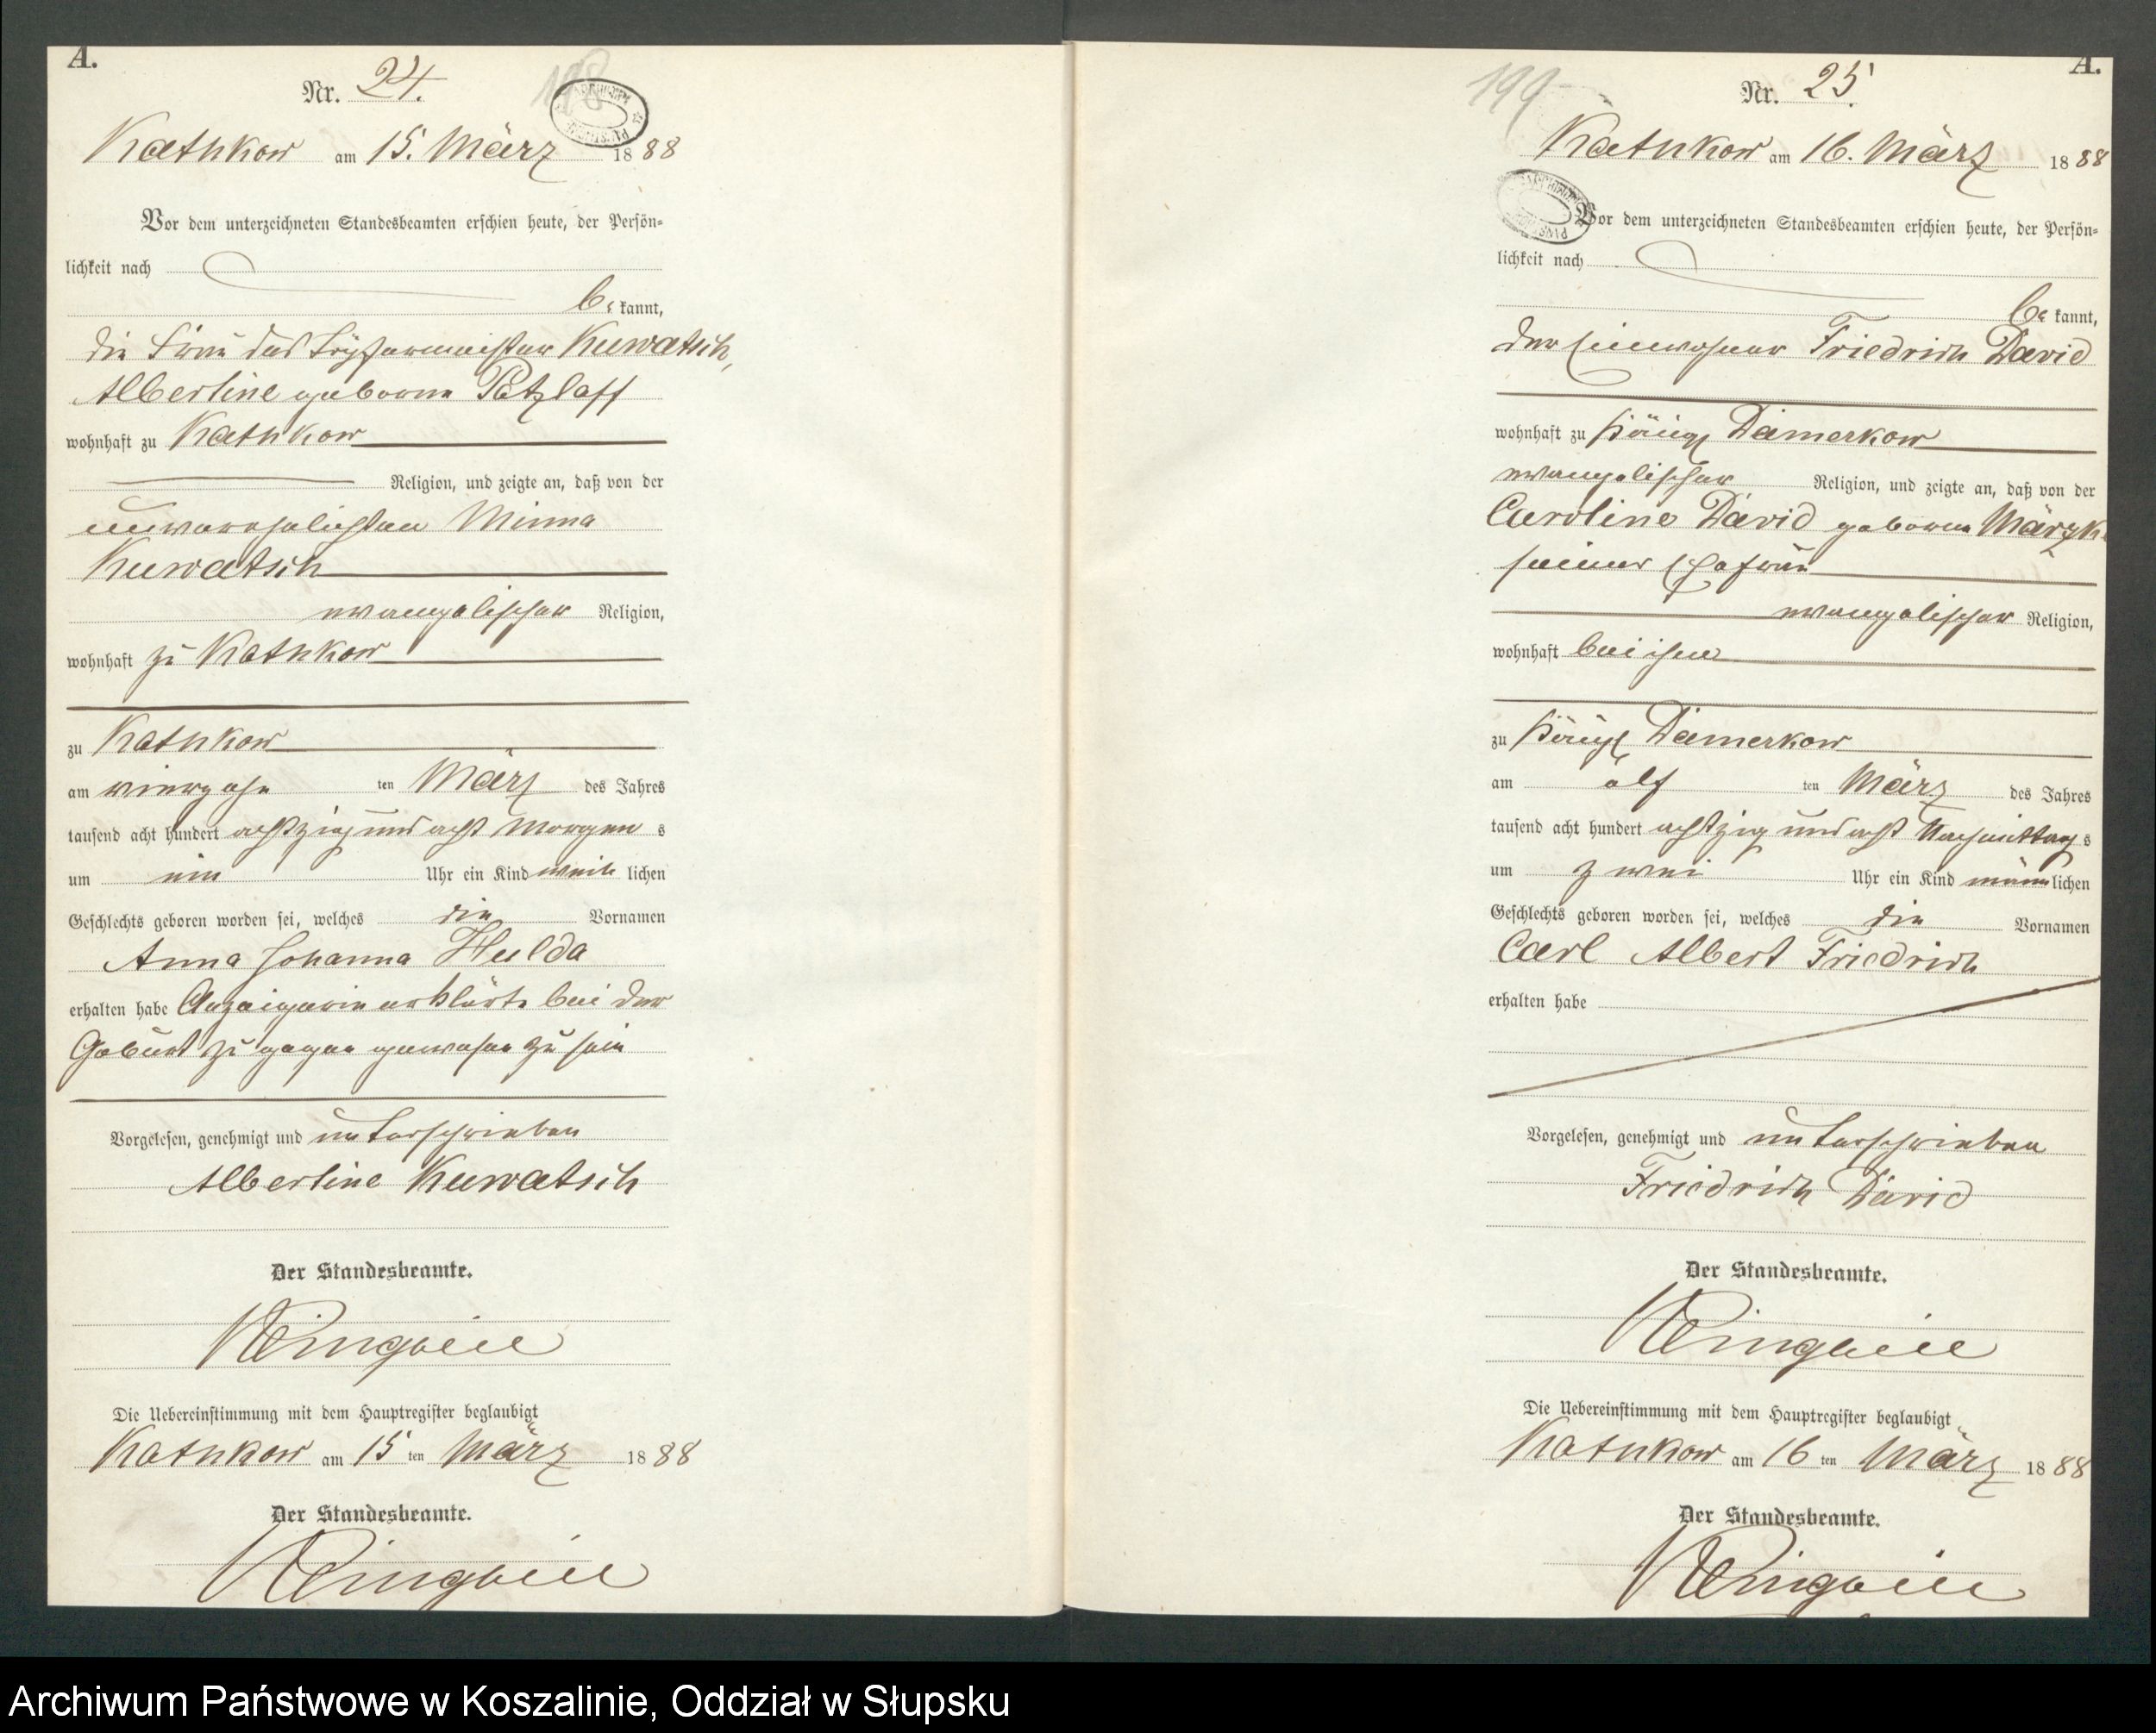 A.
Nr. 24.
198
Kathkow am 15. März 1888
Vor dem unterzeichneten Standesbeamten erschien heute, der Persön=
lichkeit nach
be kannt,
die Frau des Töpfermeister Kuwatsch,
Albertine geborne Patzlaff
wohnhaft zu Kathkow
Religion, und zeigte an, daß von der
unverehelichten Minna
Kuwatsch
evangelischer Religion,
wohnhaft zu Kathkow
zu Kathkow
am vierzehn ten März des Jahres
tausend acht hundert achtzig und acht Morgen s
um ein Uhr ein Kind weib lichen
Geschlechts geboren worden sei, welches die Vornamen
Anna Johanna Hulda
erhalten habe Anzeigerin erklärte bei der
Geburt zu gegen gewesen zu sein
Vorgelesen, genehmigt und unterschrieben
Albertine Kuwatsch
Der Standesbeamte.
Die Uebereinstimmung mit dem Hauptregister beglaubigt
Kathkow am 15 ten März 1888
Der Standesbeamte.
A.
199
Nr. 25.
Kathkow am 16. März 1888
Vor dem unterzeichneten Standesbeamten erschien heute, der Persön=
lichkeit nach
be kannt,
der Einwohner Friedrich David
wohnhaft zu Damerkow
evangelischer Religion, und zeigte an, daß von der
Caroline David geborne
seiner Ehefrau
evangelischer Religion,
wohnhaft bei ihm
zu Damerkow
am elf ten März des Jahres
tausend acht hundert achtzig und acht Nachmittag s
um zwei Uhr ein Kind männ lichen
Geschlechts geboren worden sei, welches die Vornamen
Carl Albert Friedrich
erhalten habe
Vorgelesen, genehmigt und unterschrieben
Friedrich David
Der Standesbeamte.
Die Uebereinstimmung mit dem Hauptregister beglaubigt
Kathkow am 16 ten März 1888
Der Standesbeamte.
Archiwum Państwowe w Koszalinie, Oddział w Słupsku